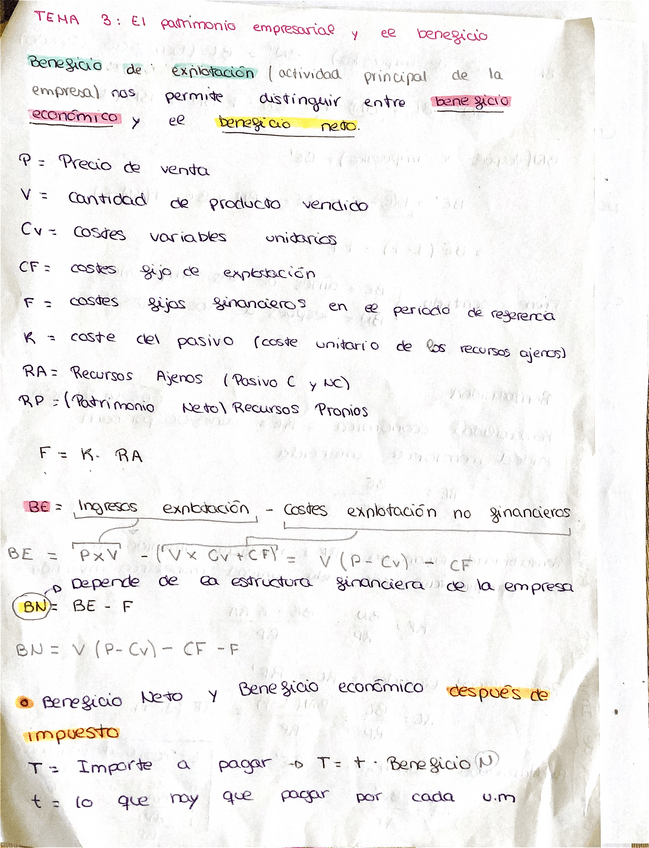 TEMA 3: El patrimonio empresarial y el beneficio
Beneficio de explotación (actividad principal de la
empresa) nos permite distinguir entre beneficio
económico y el beneficio neto.
P = Precio de venta
V = cantidad de producto vendido
Cv = costes variables unitarios
CF = costes fijo de explotación
F = costes fijos financieros en el periodo de referencia
K = coste del pasivo (coste unitario de los recursos ajenos)
RA = Recursos Ajenos (Pasivo C y NC)
RP = (Patrimonio Neto) Recursos Propios
F = K · RA
BE = Ingresos explotación - Costes explotación no financieros
BE = P x V - (V x Cv + CF) = V (P - Cv) - CF
Depende de la estructura financiera de la empresa
BN = BE - F
BN = V (P - Cv) - CF - F
Beneficio Neto y Beneficio económico después de
impuesto
T = Importe a pagar → T = t · Beneficio N
t = lo que hay que pagar por cada u.m